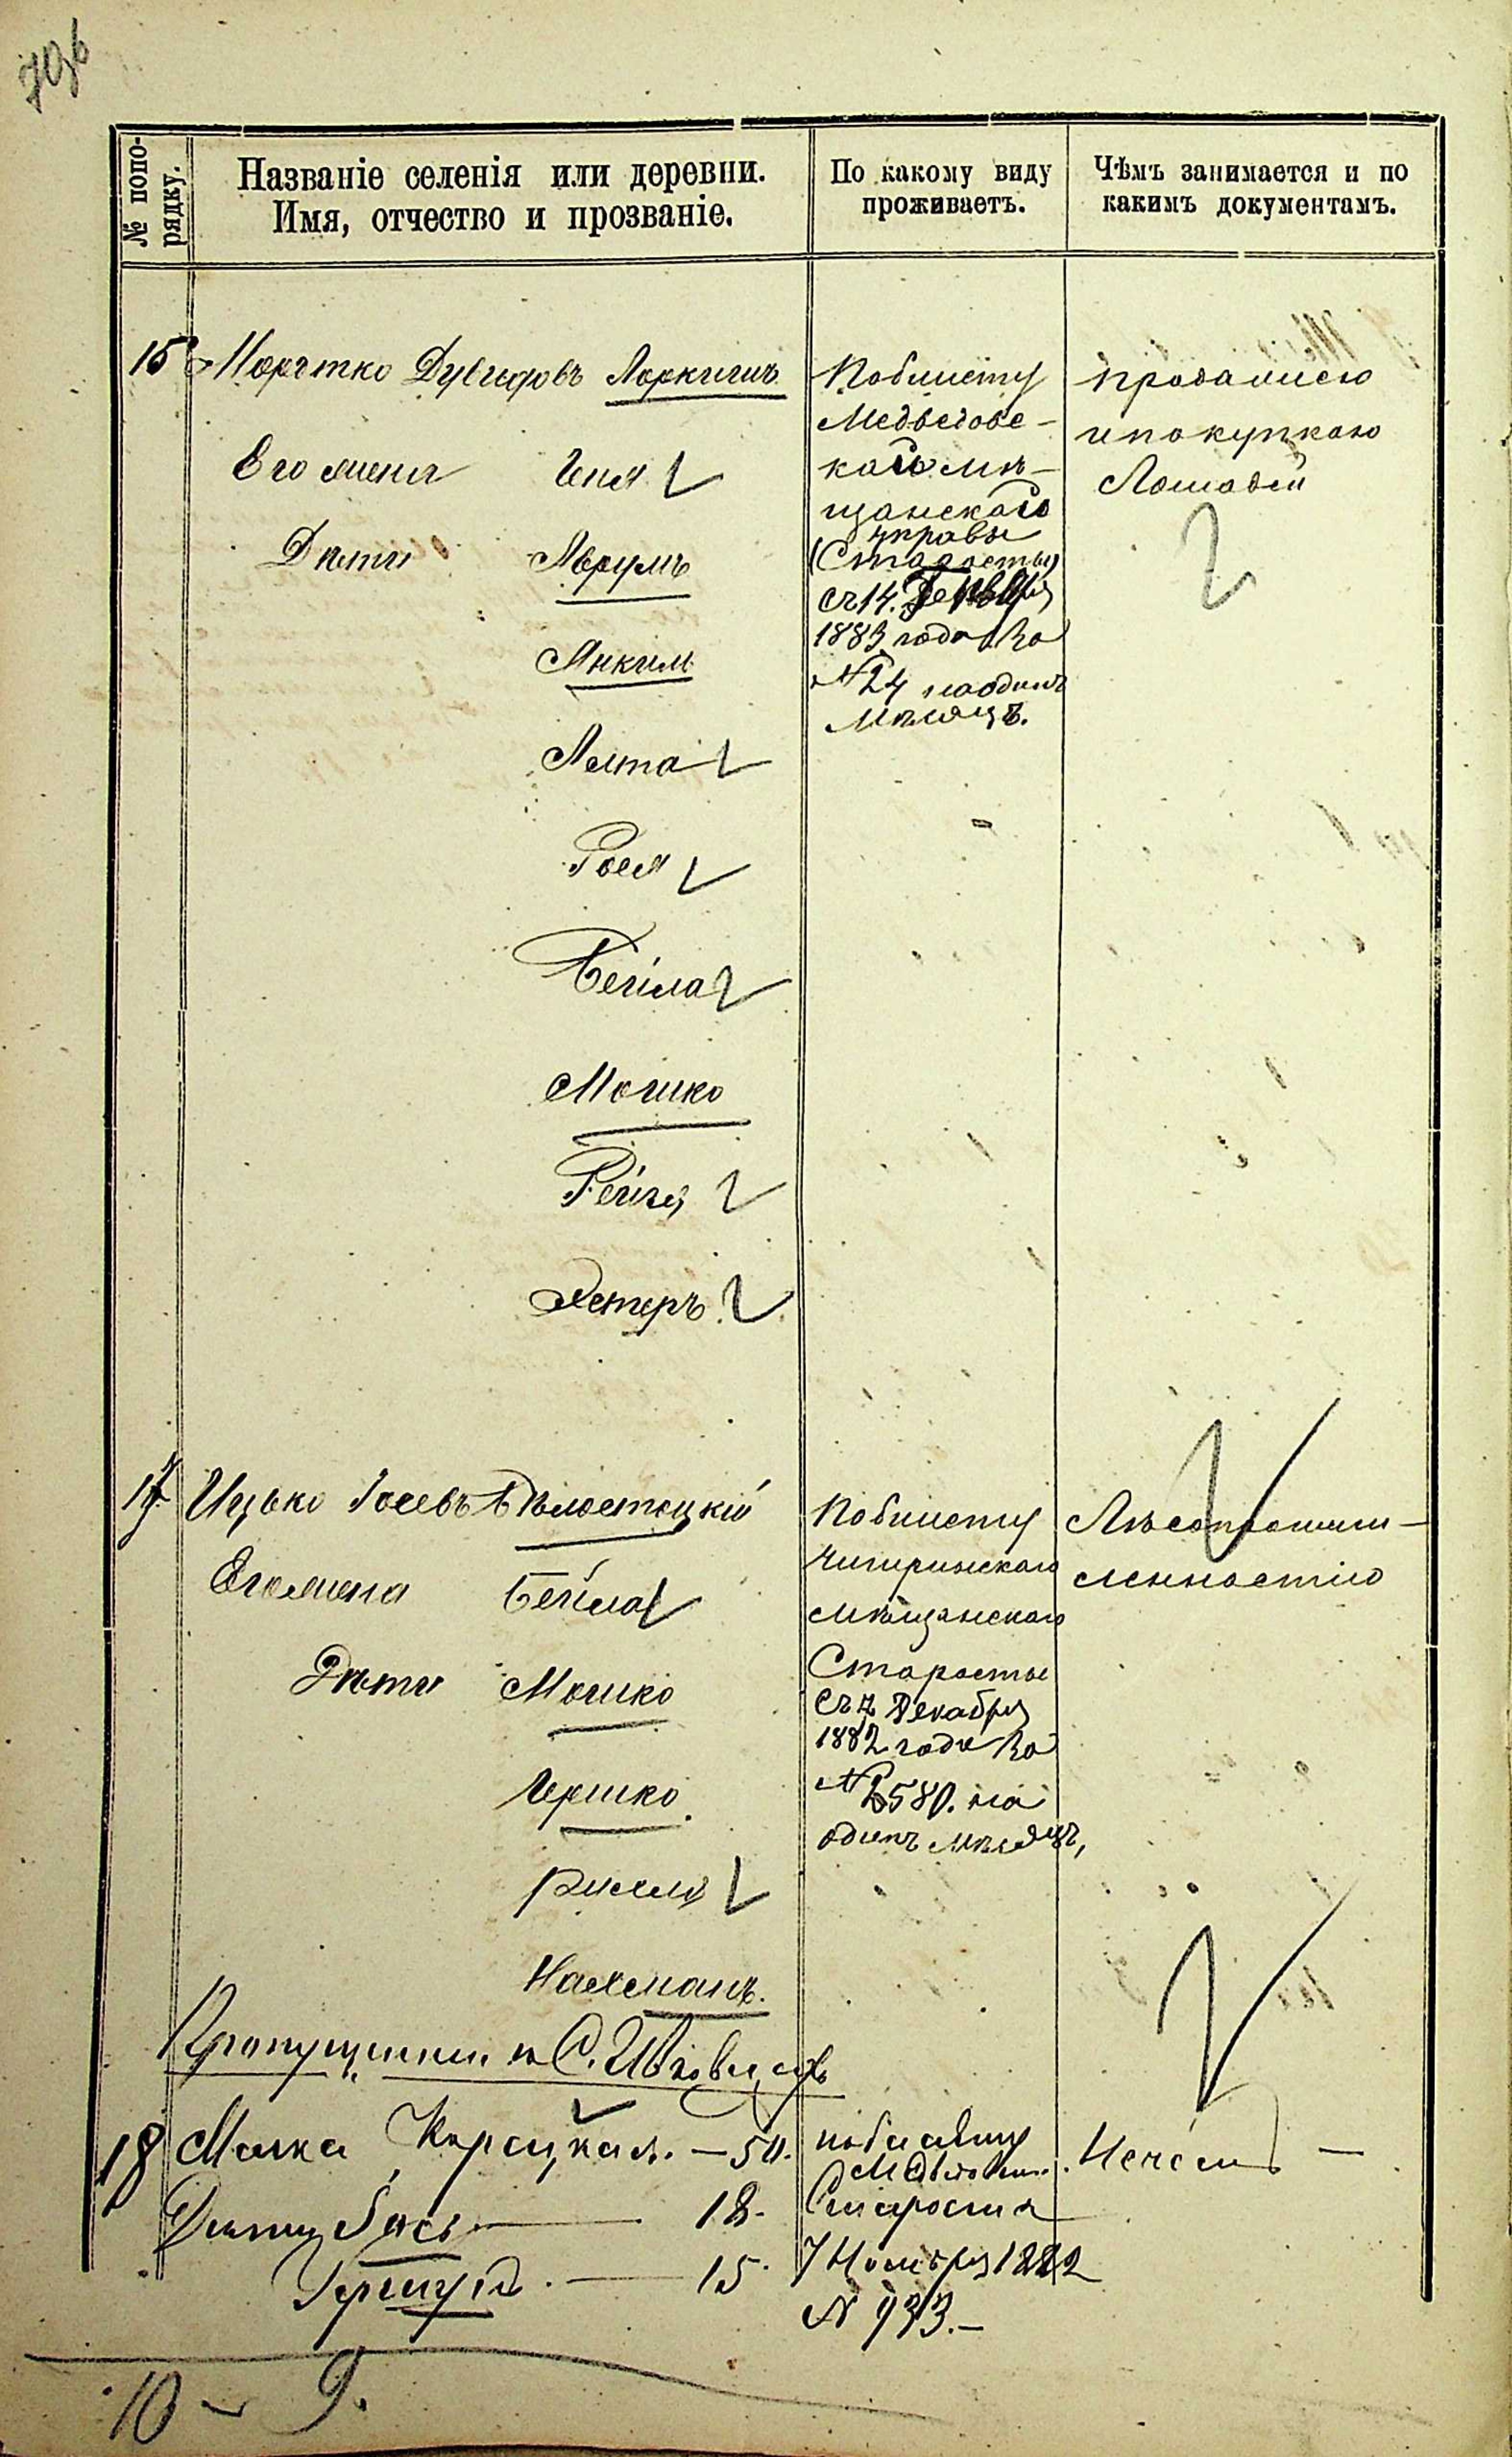 № по по-
рядку.
Названіе селенія или деревни.
Имя, отчество и прозваніе.
По какому виду
проживаетъ.
Чѣмъ занимается и по
какимъ документамъ.
15
Его жена
Дѣти Аврумъ
Янкиль
Рося
Бейла
Мошко
Рейзя
Эстеръ
По билету
Медведовс-
каго мѣ-
щанскаго
управы
(Старосты)
съ 14. Генваря
1883 года за
№ 24 на одинъ
мѣсяцъ.
Продажею
и покупкою
Лошадей
17 Ицько Іосевъ Бѣлостоцкій
Его жена Бейла
Дѣти Мошко
Гершко
Рухля
Нахманъ.
По билету
Чигиринскаго
мѣщанскаго
Старосты
съ 7 Декабря
1882 года за
№ 2580. на
одинъ мѣсяцъ,
Лѣсопромыш-
ленностію
Пропущенные в С. Ивковцахъ
18 Малка Корецкая. — 50.
Дѣти Бася — 18.
— 15.
по билету
Старосты
7 Ноября 1882
N 933.—
Нечемъ —
10 — 9.